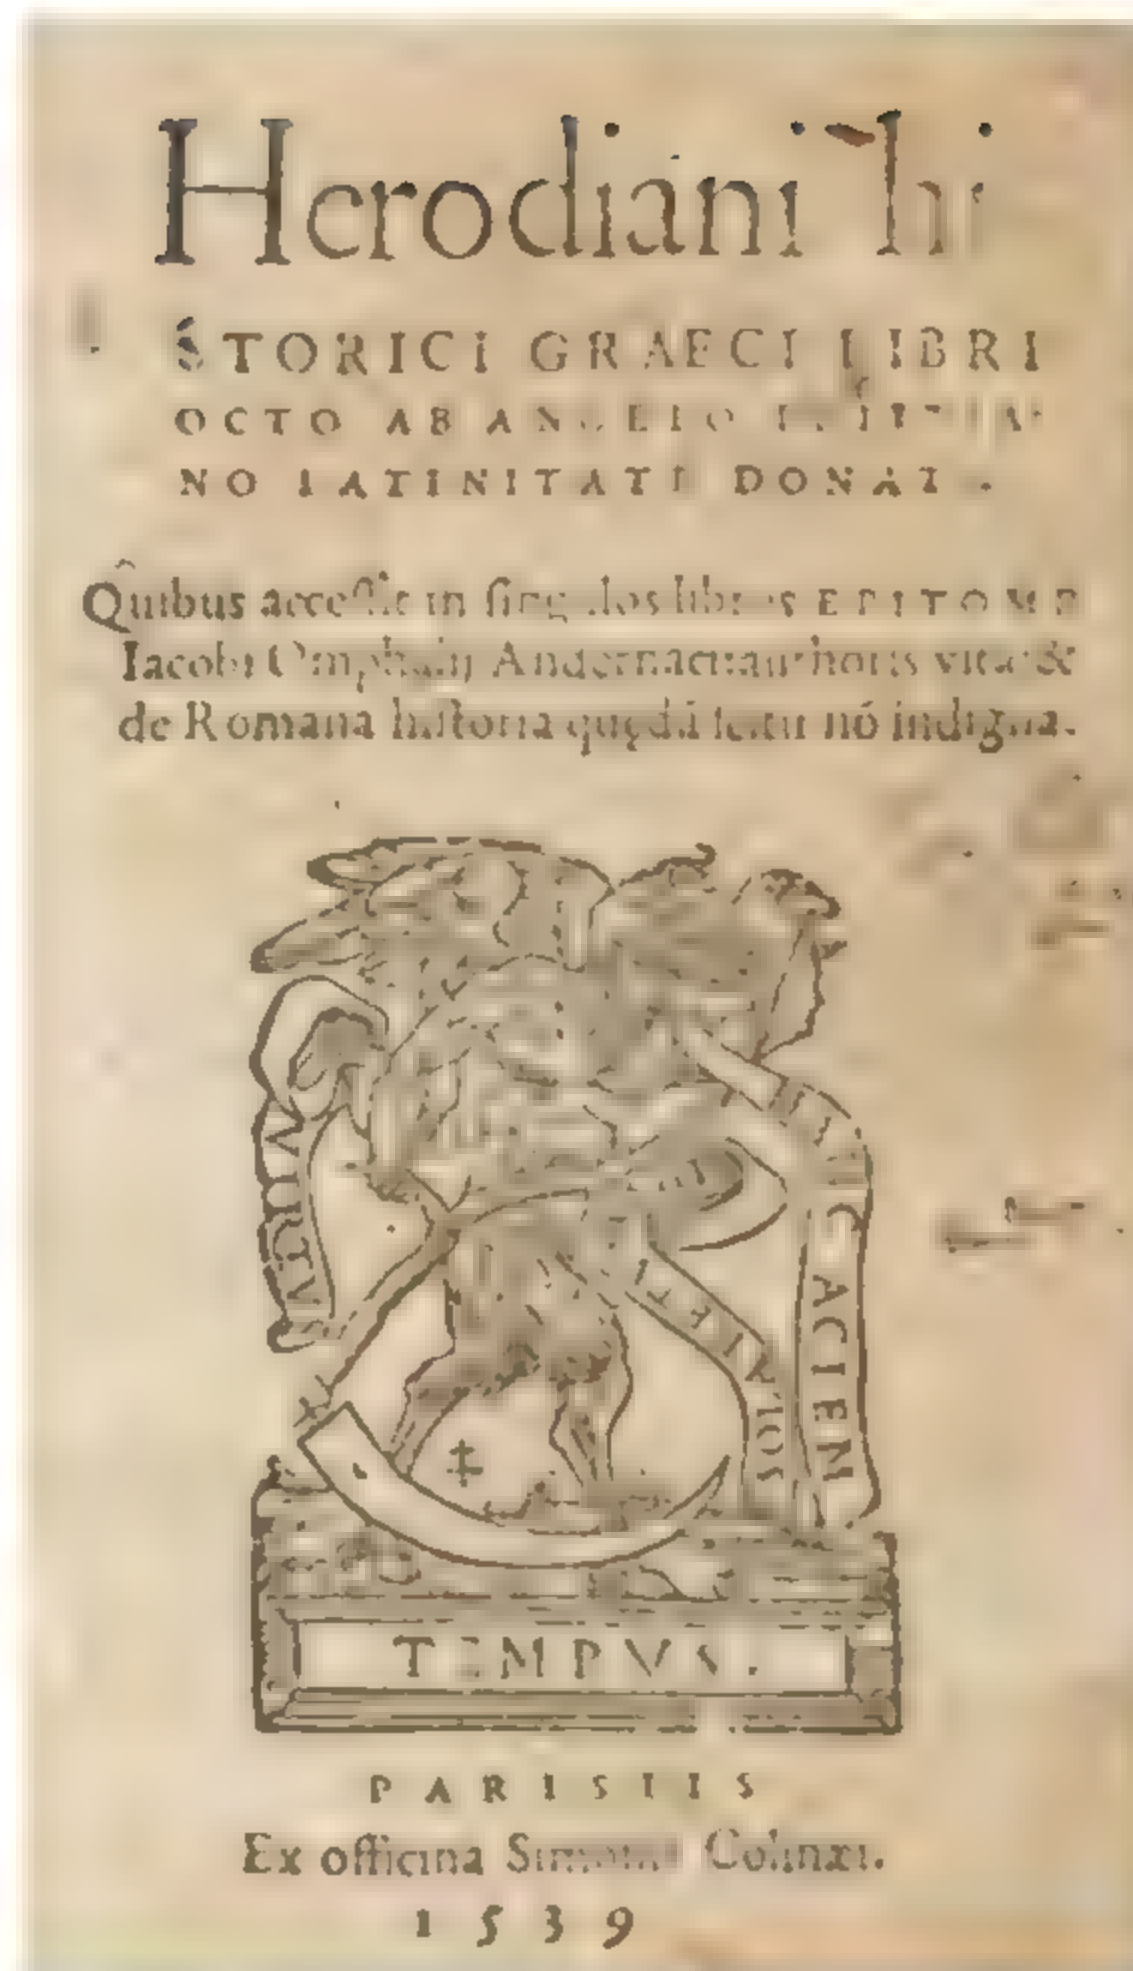 Herodiani hi
STORICI GRAECI LIBRI
OCTO AB ANGELO POLITIA
NO LATINITATE DONATI.
Quibus accessit in singulos libros EPITOME
Iacobi Omphalij Andernaci: authoris vita: &
de Romana historia quędā scitu nō indigna.
VIRTVS
HANC ACIEM
SOLA RETVNDIT
TEMPVS.
PARISIIS
Ex officina Simonis Colinæi.
1539